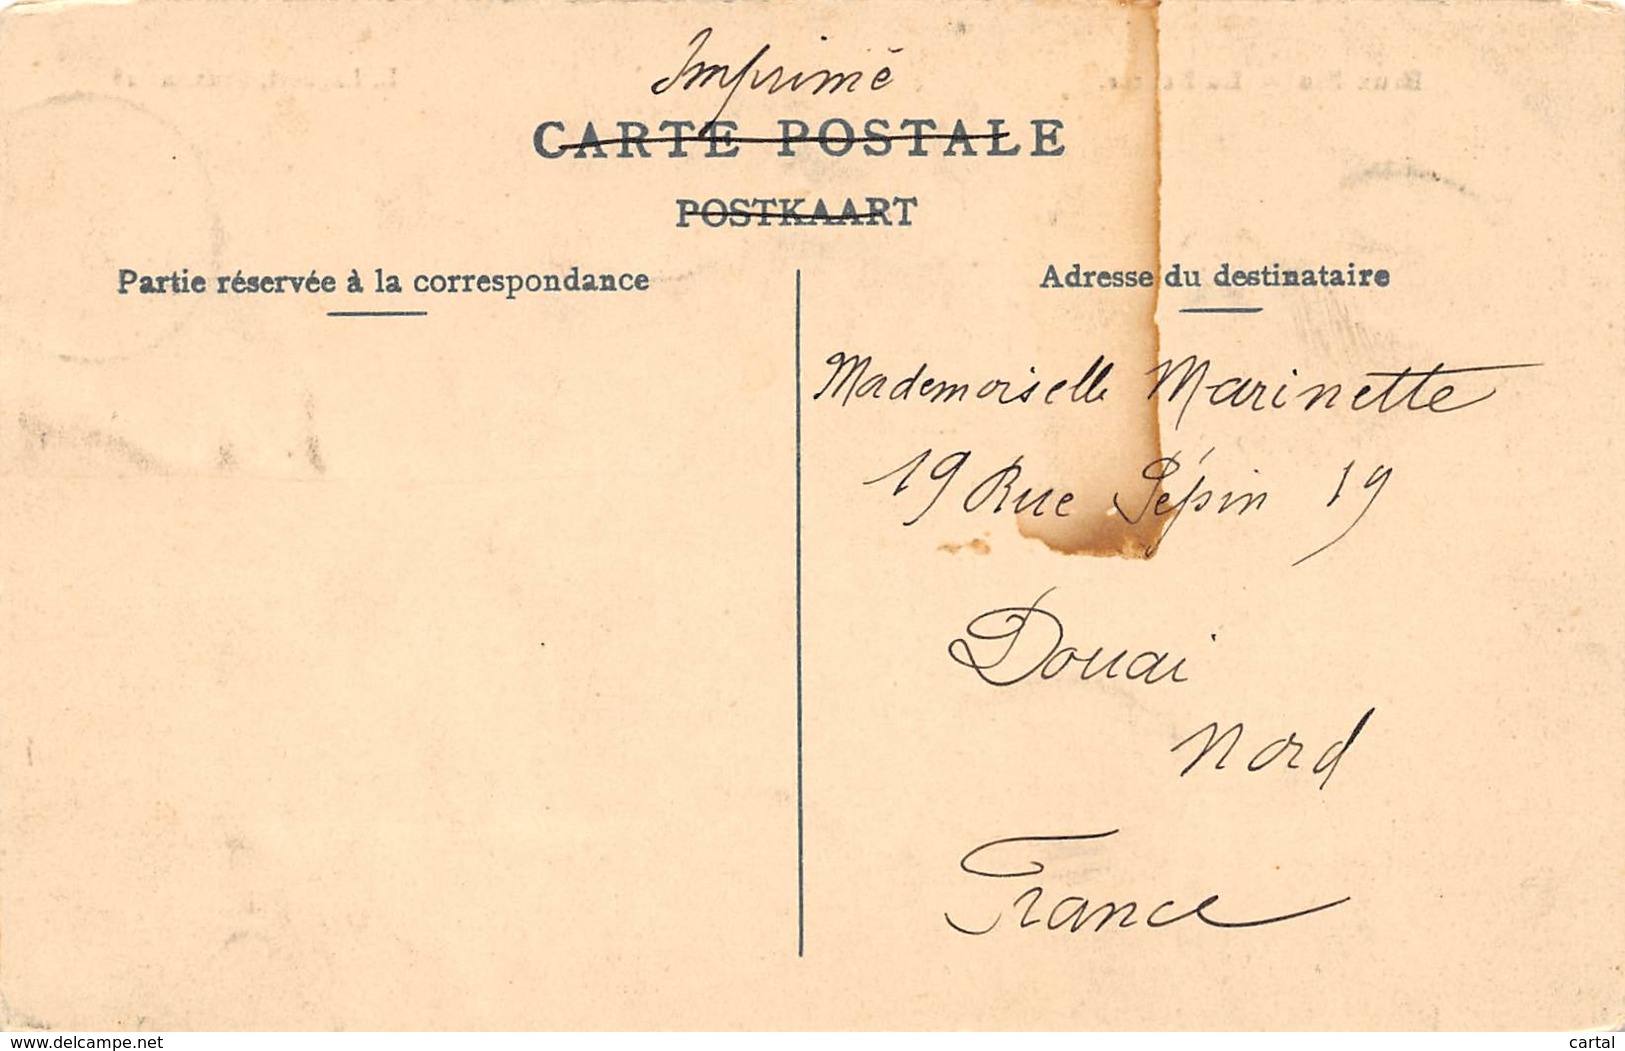 Imprimé
CARTE POSTALE
POSTKAART
Partie réservée à la correspondance
Adresse du destinataire
Mademoiselle Marinette
19 Rue Pépin 19
Douai
Nord
France
www.delcampe.net
cartal